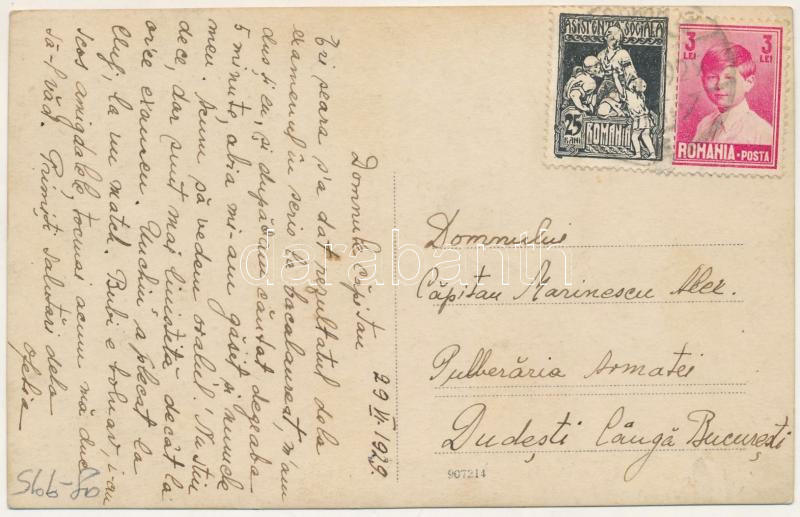 Domnule Căpitan
29 VI 1929
Eri seara s'a dat rezultatul dela
examenul în scris la bacalaureat, m'am
dus și eu, și după ce am căutat degeaba
5 minute, abia mi-am găsit și numele
meu. Acum să vedem oralul! Nu știu
dece, dar sunt mai liniștită decât la
orice examen. Unchiu' a plecat la
Cluj, la un match. Bubi e bolnav, i-au
scos amigdalele, tocmai acum mă duc
să-l văd. Primiți salutări dela
ASISTENȚA SOCIALĂ
25 BANI
ROMANIA
3 LEI
3 LEI
ROMANIA • POSTA
Domnului
Căpitan Marinescu Alex.
Pulberăria Armatei
Dudești lângă București
907214
darabanth